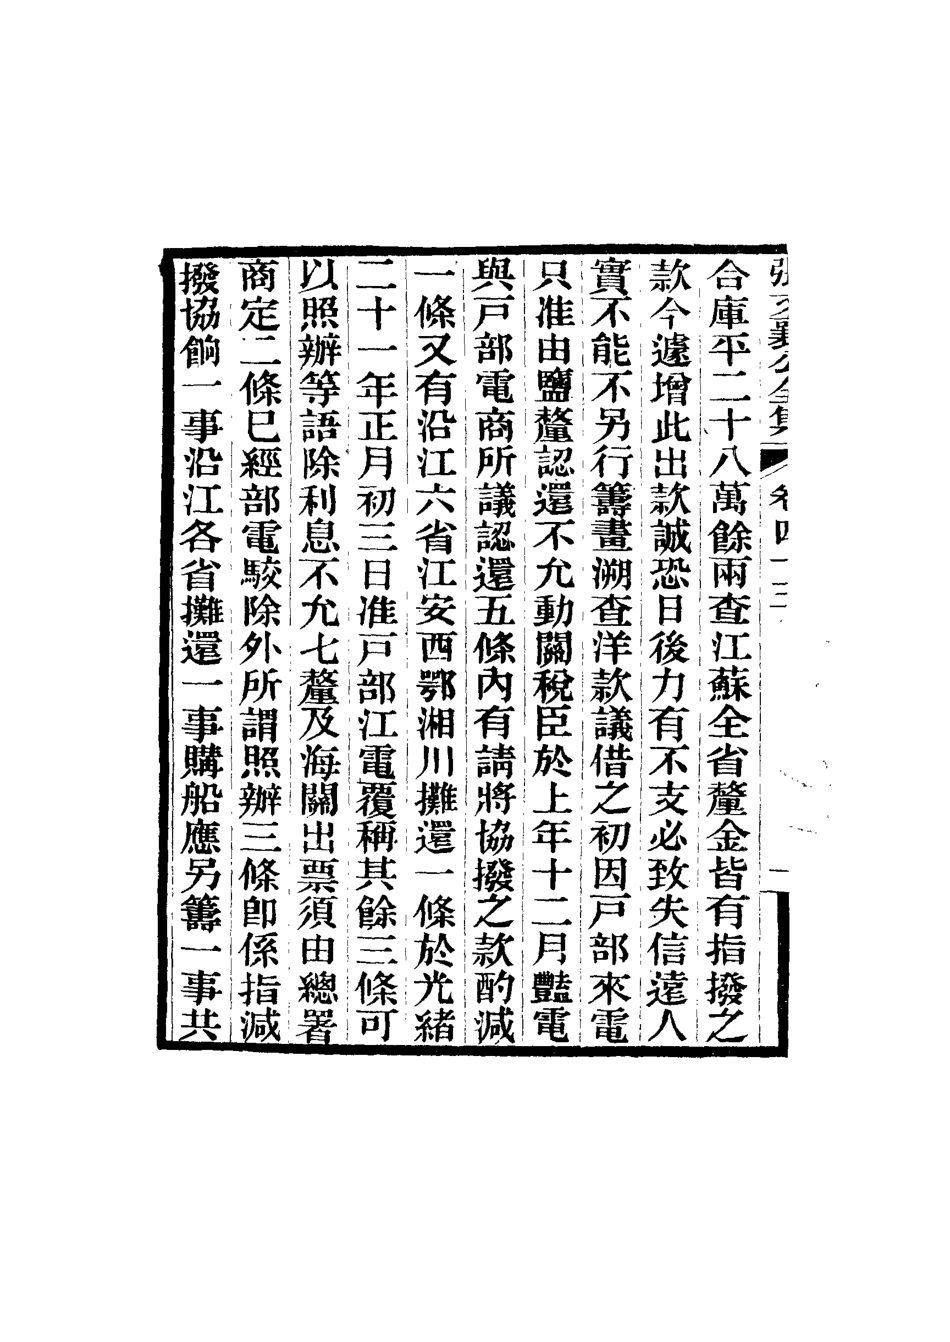 張文襄公全集 卷四十三 一
合庫平二十八萬餘兩查江蘇全省釐金皆有指撥之
款今遽增此出款誠恐日後力有不支必致失信遠人
實不能不另行籌畫溯查洋款議借之初因戸部來電
只准由鹽釐認還不允動關稅臣於上年十二月豔電
與戸部電商所議認還五條內有請將協撥之款酌減
一條又有沿江六省江安西鄂湘川攤還一條於光緒
二十一年正月初三日准戸部江電覆稱其餘三條可
以照辦等語除利息不允七釐及海關出票須由總署
商定二條已經部電駮除外所謂照辦三條卽係指減
撥協餉一事沿江各省攤還一事購船應另籌一事共